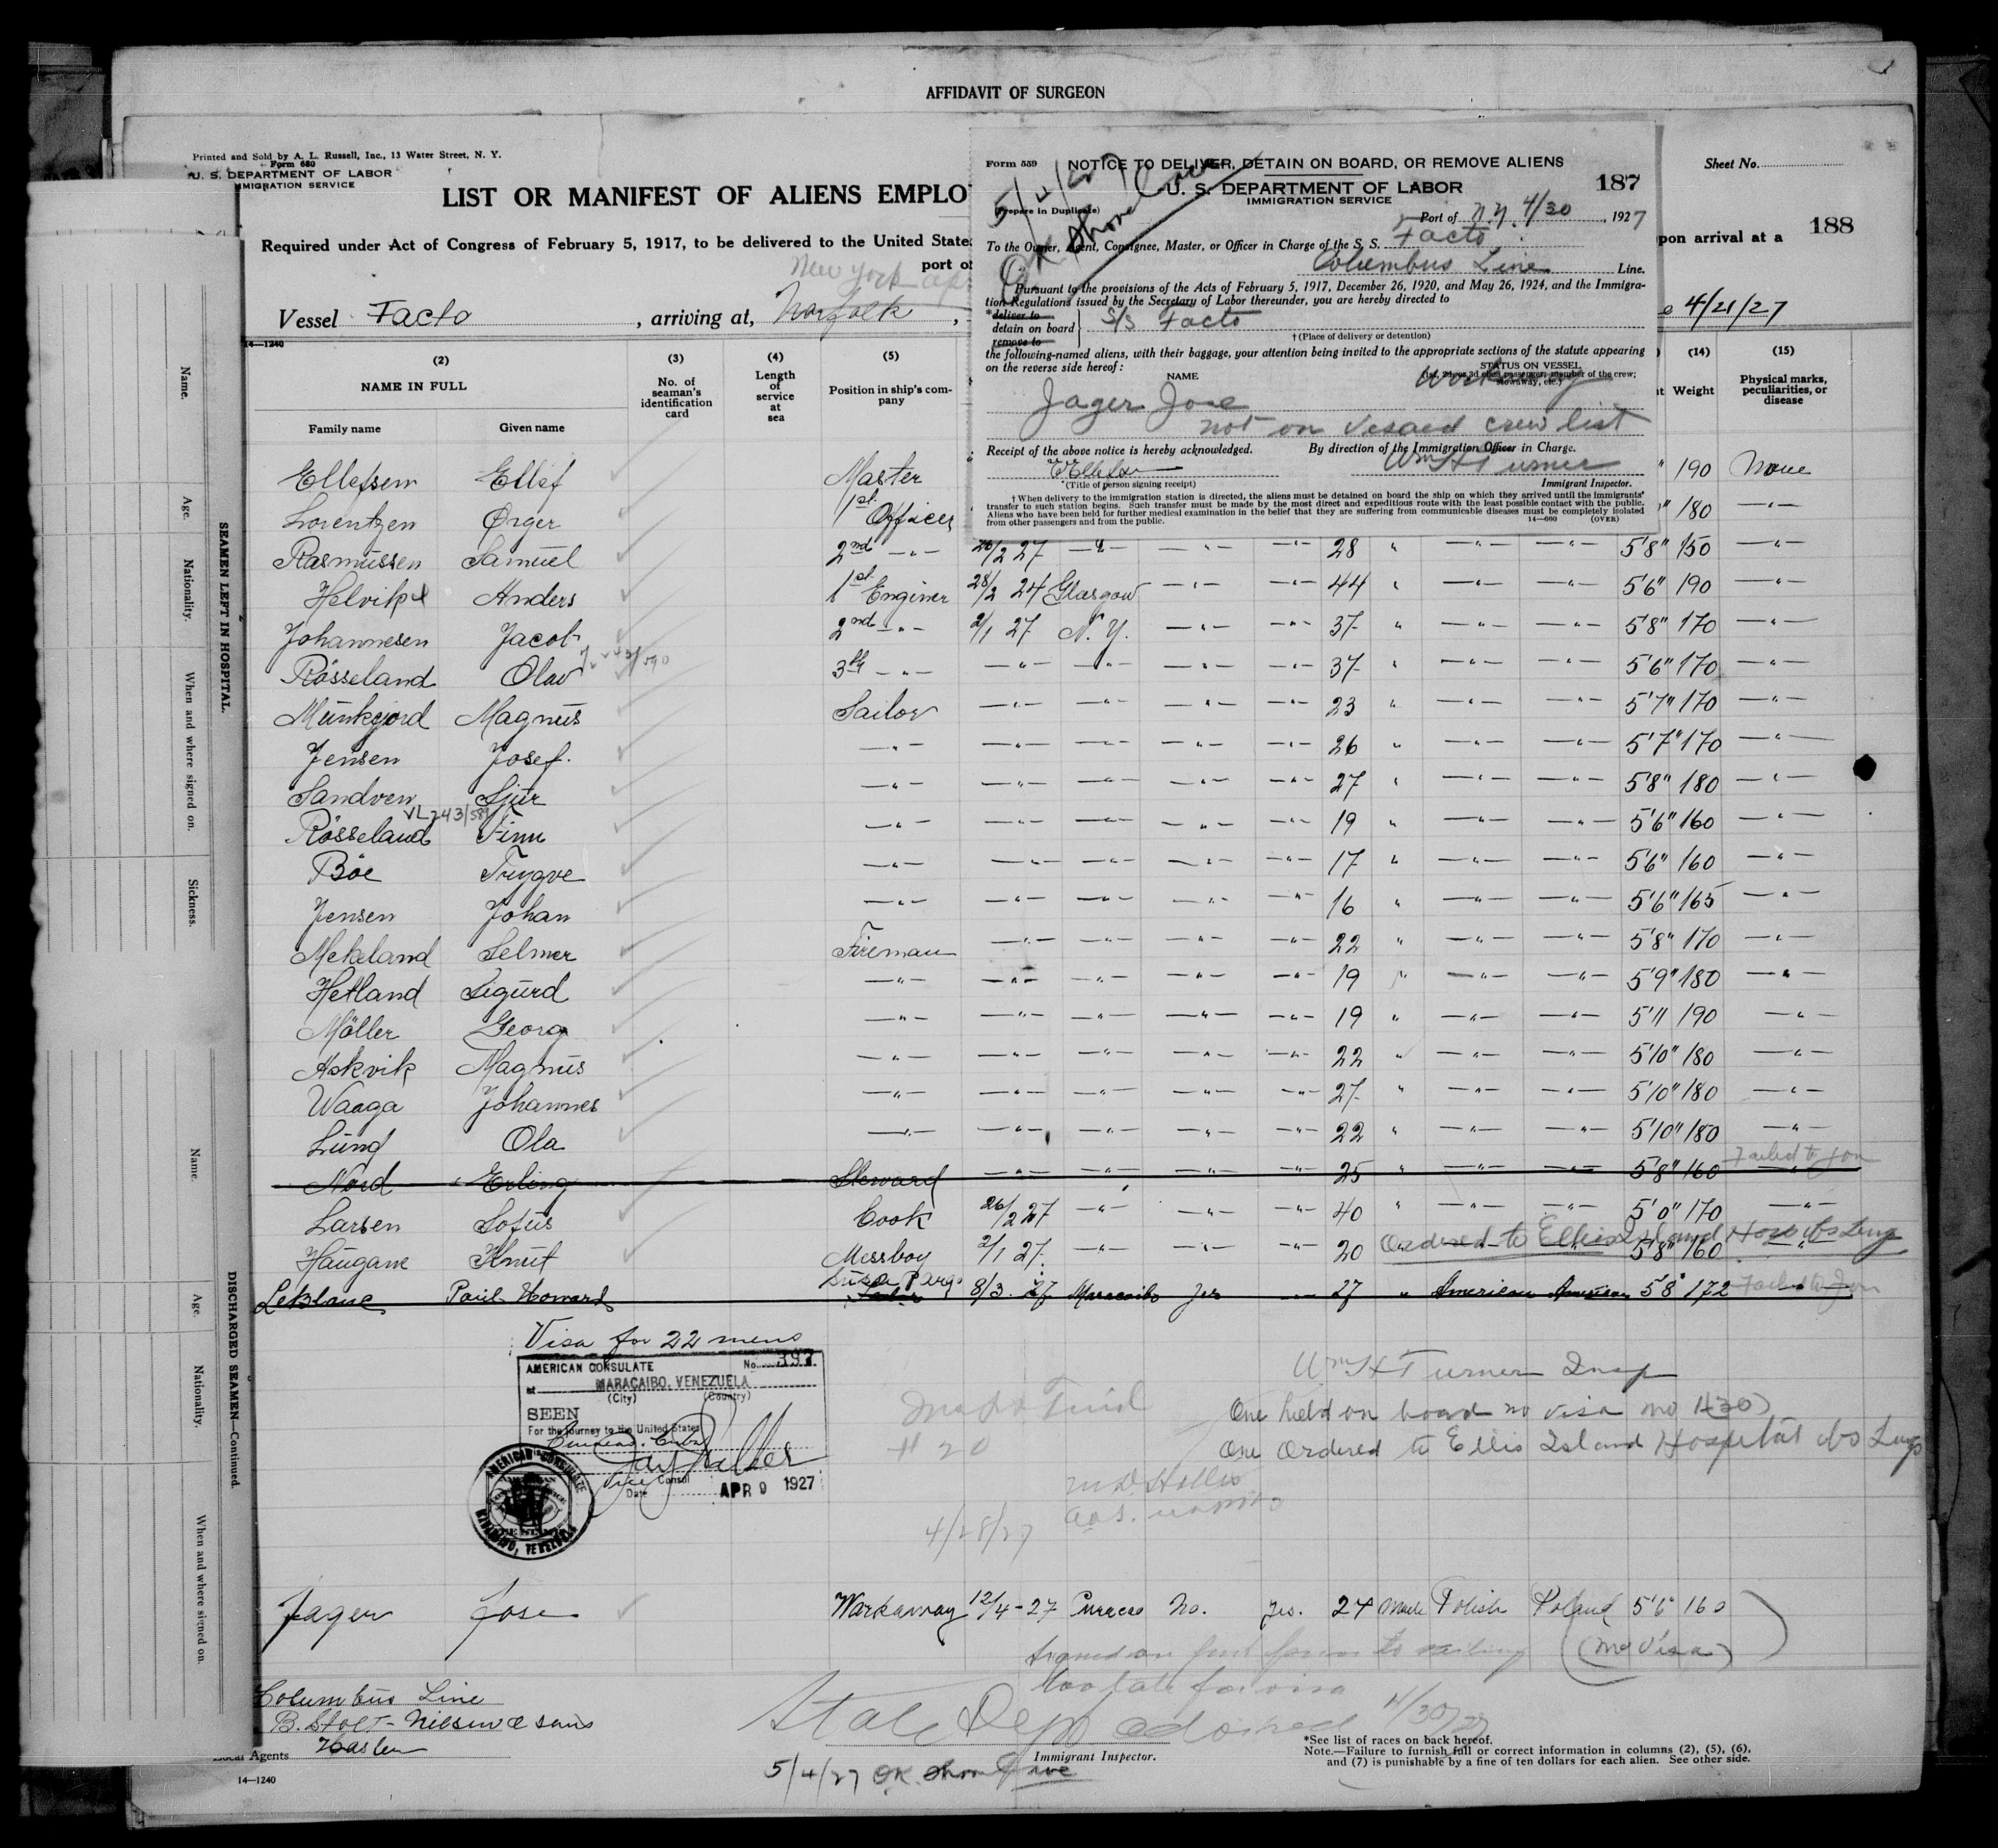 AFFIDAVIT OF SURGEON
Printed and Sold by A. L. Russell, Inc., 13 Water Street, N. Y.
Form 680
U. S. DEPARTMENT OF LABOR
IMMIGRATION SERVICE
LIST OR MANIFEST OF ALIENS EMPLO
Required under Act of Congress of February 5, 1917, to be delivered to the United State
port of
New York Apr
Vessel Facto, arriving at, Norfolk,
Sheet No.
188
upon arrival at a
4/21/27
Form 559
NOTICE TO DELIVER, DETAIN ON BOARD, OR REMOVE ALIENS
U. S. DEPARTMENT OF LABOR
IMMIGRATION SERVICE
187
(Prepare in Duplicate)
Port of N.Y. 4/30, 1927
To the Owner, Agent, Consignee, Master, or Officer in Charge of the S. S. Facto
Columbus Line Line.
Pursuant to the provisions of the Acts of February 5, 1917, December 26, 1920, and May 26, 1924, and the Immigra-
tion Regulations issued by the Secretary of Labor thereunder, you are hereby directed to
*deliver to
detain on board
remove to
S/S Facto
†(Place of delivery or detention)
the following-named aliens, with their baggage, your attention being invited to the appropriate sections of the statute appearing
on the reverse side hereof:
NAME
STATUS ON VESSEL
(1st, 2d, or 3d class passenger; member of the crew; stowaway, etc.)
Jager Jose
Workaway
not on visaed crew list
Receipt of the above notice is hereby acknowledged.
By direction of the Immigration Officer in Charge.
Wm H Turner
(Title of person signing receipt)
Immigrant Inspector.
†When delivery to the immigration station is directed, the aliens must be detained on board the ship on which they arrived until the immigrants'
transfer to such station begins. Such transfer must be made by the most direct and expeditious route with the least possible contact with the public.
Aliens who have been held for further medical examination in the belief that they are suffering from communicable diseases must be completely isolated
from other passengers and from the public.
14—660 (OVER)
14—1240
(2) (3) (4) (5) (14) (15)
NAME IN FULL
Family name Given name
No. of seaman's identification card
Length of service at sea
Position in ship's com-
pany
Weight
Physical marks, peculiarities, or disease
Ellefsen Ellef Master " 190 None
Lorentzen Örger 1st Officer " 180 —"—
Rasmussen Samuel 2nd —"— 26/2 27 —"— —"— —"— 28 " —"— —"— 5'8" 150 —"—
Helvik Anders 1st Enginer 28/2 24 Glasgow —"— —"— 44 " —"— —"— 5'6" 190 —"—
Johannesen Jacob 2nd —"— 2/1 27 N.Y. —"— —"— 37 " —"— —"— 5'8" 170 —"—
Rösseland Olav 3th —"— —"— —"— —"— —"— 37 " —"— —"— 5'6" 170 —"—
Munkejord Magnus Sailor —"— —"— —"— —"— 23 " —"— —"— 5'7" 170 —"—
Jensen Josef. —"— —"— —"— —"— —"— 26 " —"— —"— 5'7" 170 —"—
Sandven Sjur —"— —"— —"— —"— —"— 27 " —"— —"— 5'8" 180 —"—
Rösseland Finn —"— —"— —"— —"— —"— 19 " —"— —"— 5'6" 160 —"—
Böe Trygve —"— —"— —"— —"— —"— 17 " —"— —"— 5'6" 160 —"—
Jensen Johan —"— —"— —"— —"— —"— 16 " —"— —"— 5'6" 165 —"—
Mekeland Selmer Fireman —"— —"— —"— —"— 22 " —"— —"— 5'8" 170 —"—
Hetland Sigurd —"— —"— —"— —"— —"— 19 " —"— —"— 5'9" 180 —"—
Möller Georg —"— —"— —"— —"— —"— 19 " —"— —"— 5'11 190 —"—
Askvik Magnus —"— —"— —"— —"— —"— 22 " —"— —"— 5'10" 180 —"—
Waaga Johannes —"— —"— —"— —"— —"— 27 " —"— —"— 5'10" 180 —"—
Lund Ola —"— —"— —"— —"— —"— 22 " —"— —"— 5'10" 180 —"—
Nord Erling Steward —"— —"— —"— —"— 25 " —"— —"— 5'8" 160 Failed to join
Larsen Sofus Cook 26/2 27 —"— —"— —"— 40 " —"— —"— 5'0" 170 —"—
Haugane Knut Messboy 2/1 27. —"— —"— —"— 20 Ordered to Ellis Island Hosp obs Lung 5'8" 160 —"—
LeBlanc Paul Howard 8/3 27 Maracaibo Yes —"— 27 " American American 5'8" 172 Failed to Join
Visa for 22 mens
AMERICAN CONSULATE No. 397
at MARACAIBO, VENEZUELA
(City) (Country)
SEEN
For the journey to the United States
Vice Consul
Date APR 9 1927
AMERICAN CONSULATE
MARACAIBO, VENEZUELA
Wm H Turner Insp
One held on board no visa
One Ordered to Ellis Island Hospital obs Lungs
# 20
4/28/27
Jager Jose Workaway 12/4-27 Curacao No. Yes. 24 Male Polish Poland 5'6" 160
Signed on just prior to sailing
(no Visa)
too late for visa
State Dept advised 4/30/27
Columbus Line
B. Stolt-Nilsen & Sons
Local Agents
Immigrant Inspector.
5/4/27 OK Shore Leave
*See list of races on back hereof.
Note.—Failure to furnish full or correct information in columns (2), (5), (6),
and (7) is punishable by a fine of ten dollars for each alien. See other side.
14—1240
SEAMEN LEFT IN HOSPITAL.
Name.
Age.
Nationality.
When and where signed on.
Sickness.
DISCHARGED SEAMEN—Continued.
Name.
Age.
Nationality.
When and where signed on.